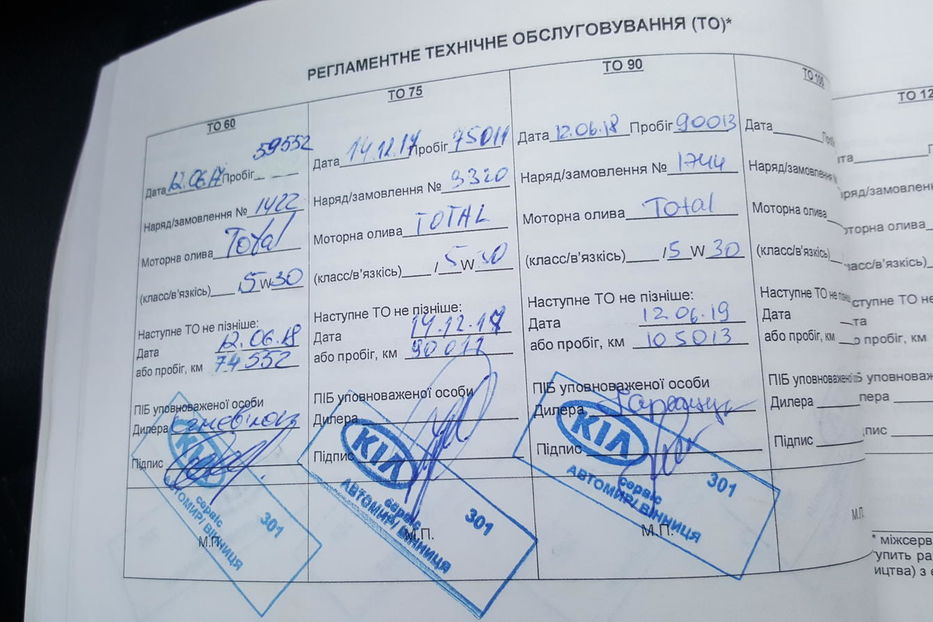 РЕГЛАМЕНТНЕ ТЕХНІЧНЕ ОБСЛУГОВУВАННЯ (ТО)*
ТО 60
59552
Дата 12.06.17 Пробіг
Наряд/замовлення № 1422
Моторна олива Total
(класс/в'язкісь) / 5 W 30
Наступне ТО не пізніше:
Дата 12.06.18
або пробіг, км 74552
ПІБ уповноваженої особи
Дилера
Підпис
КІА
сервіс
АВТОМИР/ ВІННИЦЯ
301
М.П.
ТО 75
Дата 14.12.17 Пробіг 75011
Наряд/замовлення № 3320
Моторна олива TOTAL
(класс/в'язкісь) / 5 W 30
Наступне ТО не пізніше:
Дата 14.12.18
або пробіг, км 90011
ПІБ уповноваженої особи
Дилера
Підпис
КІА
сервіс
АВТОМИР/ ВІННИЦЯ
301
М.П.
ТО 90
Дата 12.06.18 Пробіг 90013
Наряд/замовлення № 1744
Моторна олива Total
(класс/в'язкісь) / 5 W 30
Наступне ТО не пізніше:
Дата 12.06.19
або пробіг, км 105013
ПІБ уповноваженої особи
Дилера
Підпис
КІА
сервіс
АВТОМИР/ ВІННИЦЯ
301
М.П.
Дата
Наряд/замовлення
Моторна олива
(класс/в'язкісь)
Наступне ТО не
Дата
або пробіг, км
ПІБ уповноважено
Дилера
Підпис
М.П.
ТО 12
* міжсерв
упить ра
ицтва) з